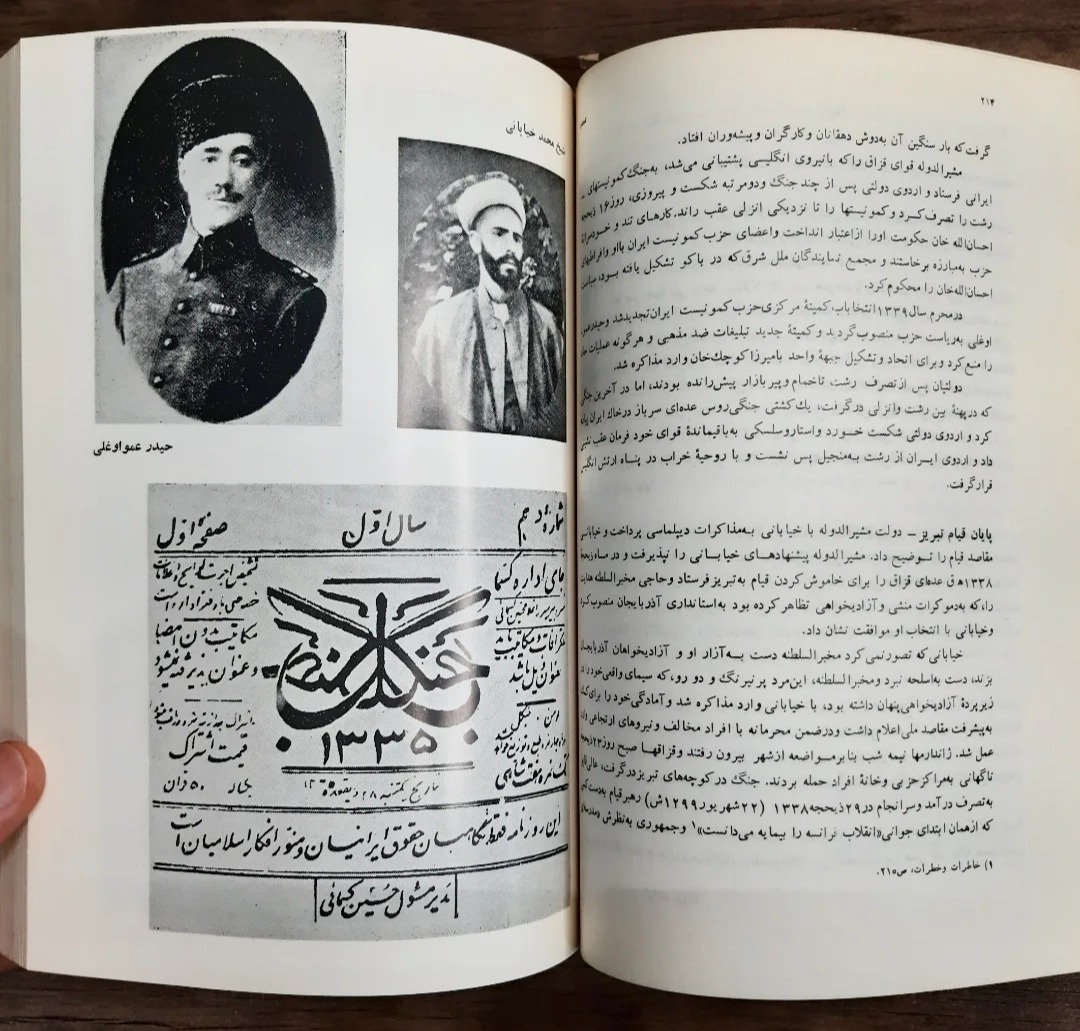 شیخ محمد خیابانی
حیدر عمواوغلی
شماره دهم
سال اول
صفحهٔ اول
جای اداره کسما
جنگل
۱۳۳۵
خصوصی با دفتر اداره است
مکاتیب بدون امضا
و عنوان پذیرفته نمیشود
قیمت اشتراک
۵۰ قران
عنوان ذیل باشد
تاریخ یکشنبه ۲۸ ذیقعده
این روزنامه فقط نگاهبان حقوق ایرانیان و منور افکار اسلامیان است
مدیر مسئول حسین کسمائی
۲۱۴
گرفت که بار سنگین آن به‌دوش دهقانان و کارگران و پیشه‌وران افتاد.
مشیرالدوله قوای قزاق را که با نیروی انگلیسی پشتیبانی می‌شد، به‌جنگ کمونیستهای
ایرانی فرستاد و اردوی دولتی پس از چند جنگ و دو مرتبه شکست و پیروزی، روز ۱۶ ذیحجه
رشت را تصرف کرد و کمونیستها را تا نزدیکی انزلی عقب راند. کارهای تند و خودسرانه
احسان‌الله خان حکومت او را از اعتبار انداخت و اعضای حزب کمونیست ایران با او و افراطیهای
حزب به‌مبارزه برخاستند و مجمع نمایندگان ملل شرق که در باکو تشکیل یافته بود، سیاست
احسان‌الله‌خان را محکوم کرد.
در محرم سال ۱۳۳۹ انتخاباب، کمیتهٔ مرکزی حزب کمونیست ایران تجدید شد و حیدر عمو
اوغلی به‌ریاست حزب منصوب گردید و کمیتهٔ جدید تبلیغات ضد مذهبی و هرگونه عملیات
را منع کرد و برای اتحاد و تشکیل جبههٔ واحد با میرزا کوچك‌خان وارد مذاکره شد.
دولتیان پس از تصرف رشت، تا خمام و پیربازار پیش‌رانده بودند، اما در آخرین جنگی
که در پهنهٔ بین رشت و انزلی در گرفت، یك کشتی جنگی روس عده‌ای سرباز در خاك ایران پیاده
کرد و اردوی دولتی شکست خورد و استاروسلسکی به‌باقیماندهٔ قوای خود فرمان عقب نشینی
داد و اردوی ایران از رشت به‌منجیل پس نشست و با روحیهٔ خراب در پناه ارتش انگلیس
قرار گرفت.
پایان قیام تبریز – دولت مشیرالدوله با خیابانی به‌مذاکرات دیپلماسی پرداخت و خیابانی
مقاصد قیام را توضیح داد. مشیرالدوله پیشنهادهای خیابانی را نپذیرفت و در ماه ذیحجهٔ
۱۳۳۸ ه‍ ق عده‌ای قزاق را برای خاموش کردن قیام به‌تبریز فرستاد و حاجی مخبرالسلطنه هدایت
را، که به‌دموکرات منشی و آزادیخواهی تظاهر کرده بود به‌استانداری آذربایجان منصوب کرد
و خیابانی با انتخاب او موافقت نشان داد.
خیابانی که تصور نمی کرد مخبرالسلطنه دست به‌آزار او و آزادیخواهان آذربایجان
بزند، دست به‌اسلحه نبرد و مخبرالسلطنه، این‌مرد پر نیرنگ و دو رو، که سیمای واقعی خود را در
زیر پردهٔ آزادیخواهی پنهان داشته بود، با خیابانی وارد مذاکره شد و آمادگی خود را برای کمك
به‌پیشرفت مقاصد ملی اعلام داشت و درضمن محرمانه با افراد مخالف و نیروهای ارتجاعی وارد
عمل شد. ژاندارمها نیمه شب بنا بر مواضعه از شهر بیرون رفتند و قزاقها صبح روز ۲۳ ذیحجه
ناگهانی به‌مراکز حزبی و خانهٔ افراد حمله بردند. جنگ در کوچه‌های تبریز در گرفت، عالی‌قاپو
به‌تصرف درآمد و سرانجام در ۲۹ ذیحجه ۱۳۳۸ (۲۲ شهریور ۱۲۹۹ش) رهبر قیام به‌دست
که از همان ابتدای جوانی «انقلاب فرانسه را بیمایه می‌دانست»۱ و جمهوری به‌نظرش
۱) خاطرات و خطرات، ص ۲۱۵.